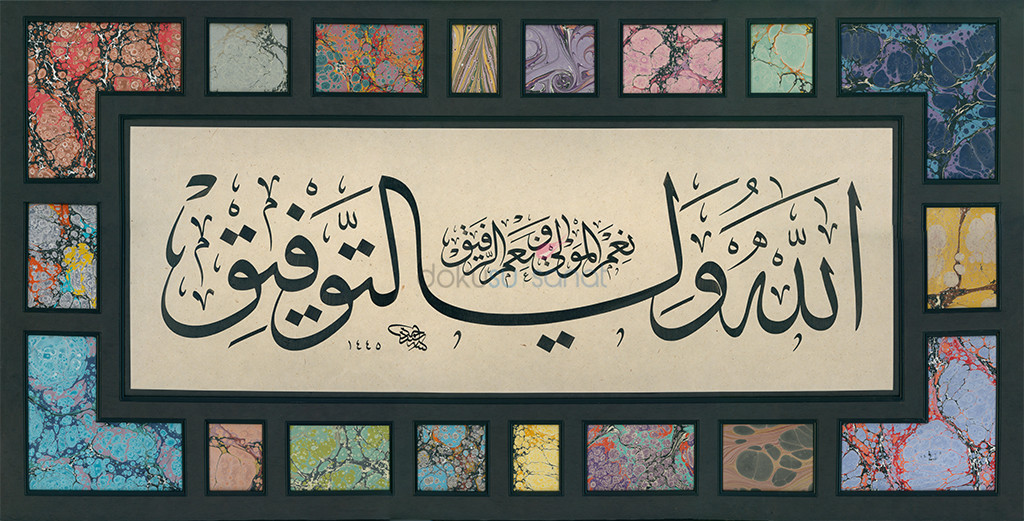 الله ولي التوفيق
نعم المولى ونعم الرفيق
١٤٤٥
sanat